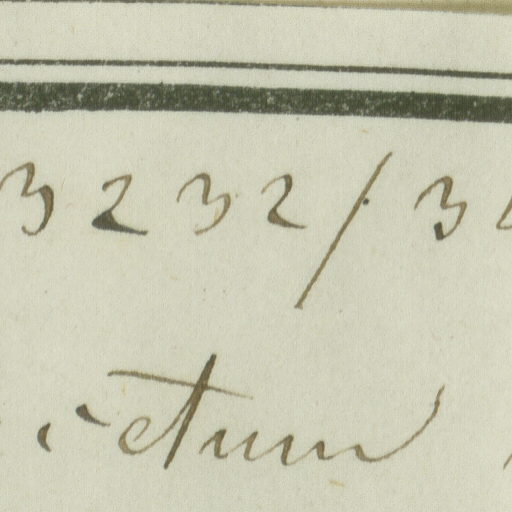 3232/3
ictum